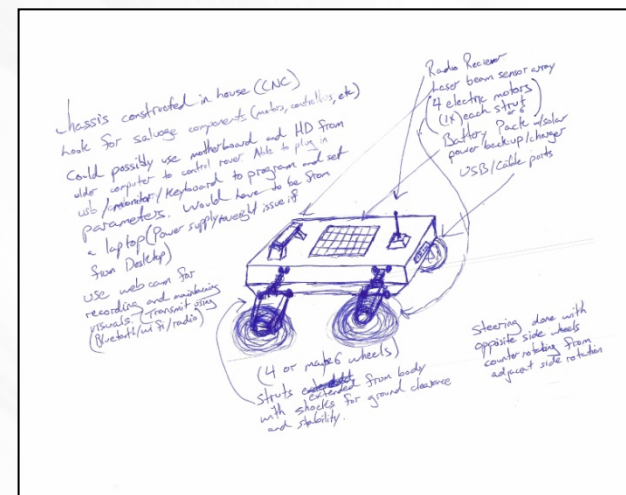 Chassis constructed in house (CNC)
Look for salvage components (motors, controllers, etc)
Could possibly use motherboard and HD from
older computer to control rover. Able to plug in
usb/monitor/keyboard to program and set
parameters. Would have to be from
a laptop (Power supply/weight issue if
from Desktop)
use webcam for
recording and maintaining
visuals. (Transmit using
Bluetooth/wi fi/radio)
Radio Reciever
Laser beam sensor array
4 electric motors
(1x) each strut
or 6
Battery Pack w/solar
power backup/charger
USB/Cable ports
(4 or maybe 6 wheels)
struts extended from body
with shocks for ground clearance
and stability.
Steering done with
opposite side wheels
counter rotating from
adjacent side rotation